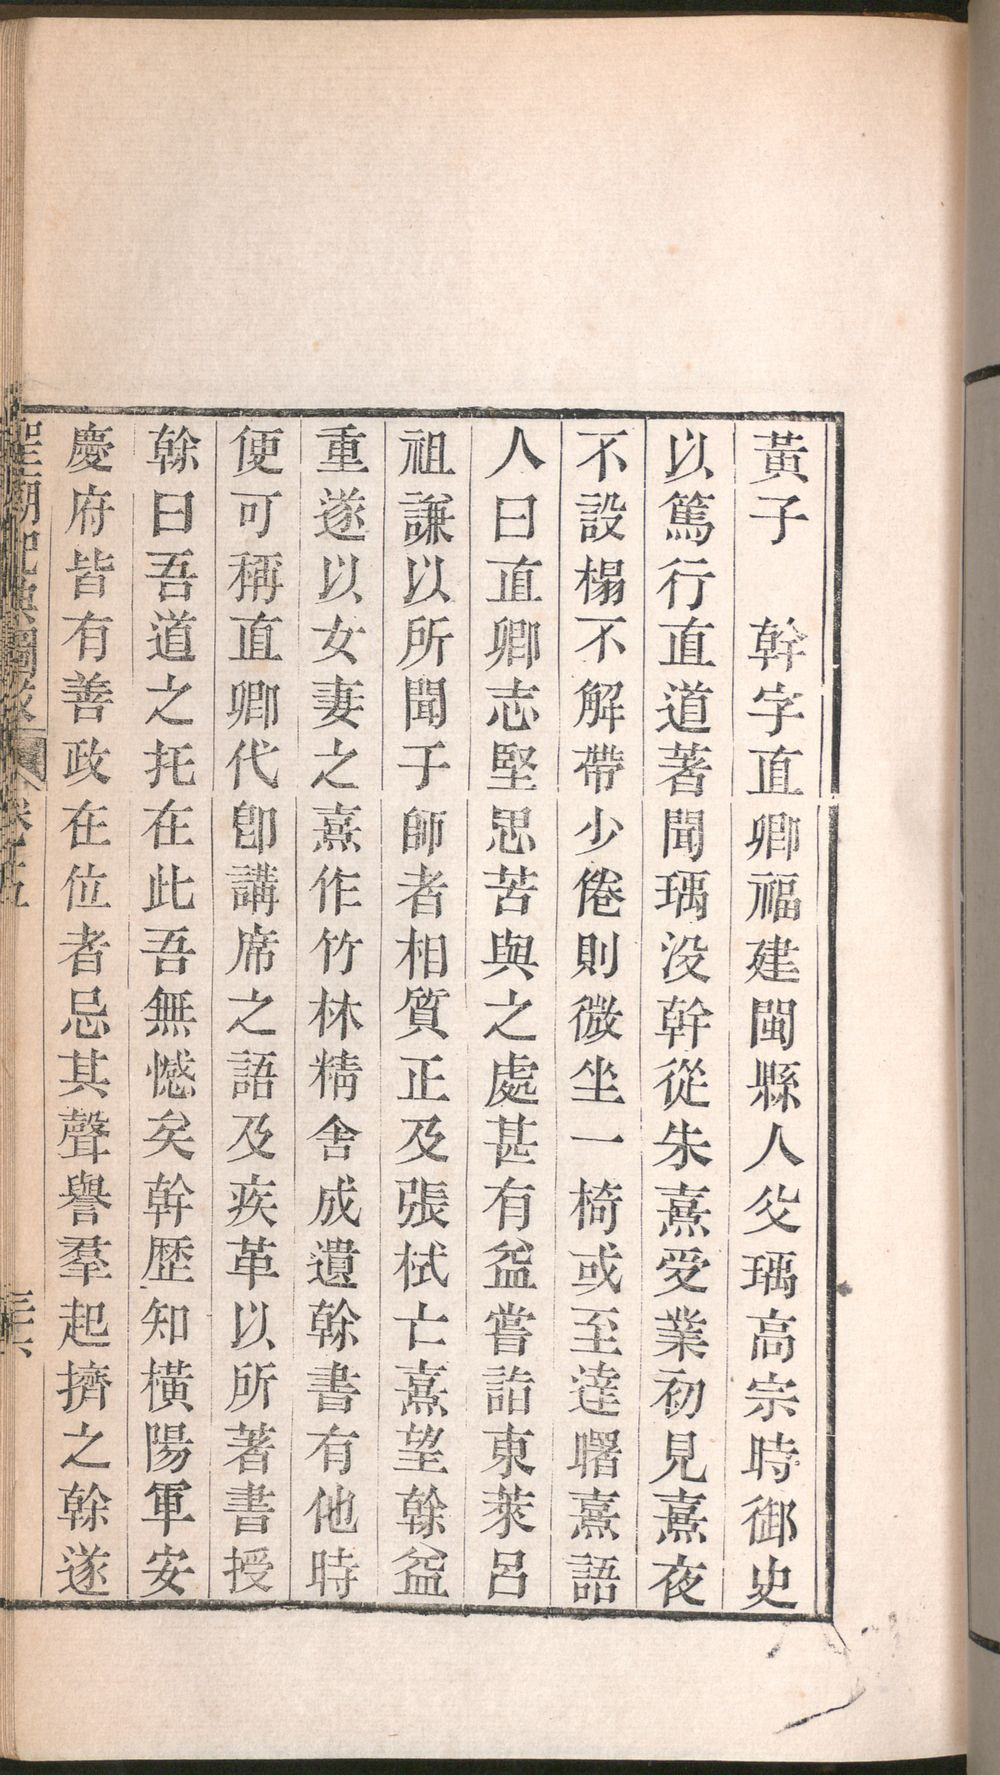 黃子　幹字直卿福建閩縣人父瑀高宗時御史
以篤行直道著聞瑀没幹從朱熹受業初見熹夜
不設榻不解帶少倦則微坐一椅或至達曙熹語
人曰直卿志堅思苦與之處甚有益嘗詣東萊呂
祖謙以所聞于師者相質正及張栻亡熹望榦益
重遂以女妻之熹作竹林精舍成遺榦書有他時
便可稱直卿代卽講席之語及疾革以所著書授
榦曰吾道之托在此吾無憾矣幹歷知橫陽軍安
慶府皆有善政在位者忌其聲譽羣起擠之榦遂
聖廟祀典圖考 卷五